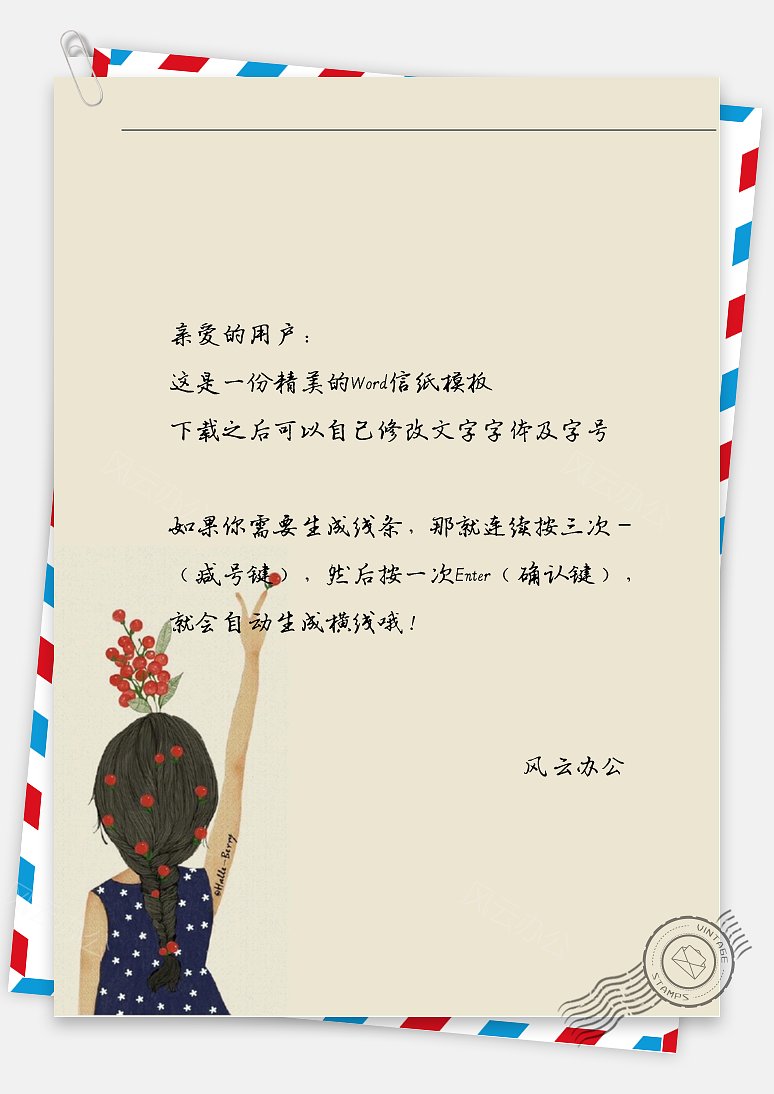 亲爱的用户：
这是一份精美的Word信纸模板
下载之后可以自己修改文字字体及字号
如果你需要生成线条，那就连续按三次-
（减号键），然后按一次Enter（确认键），
就会自动生成横线哦！
风云办公
©Halle-Berry
VINTAGE
STAMPS
风云办公
风云办公
风云办公
风云办公